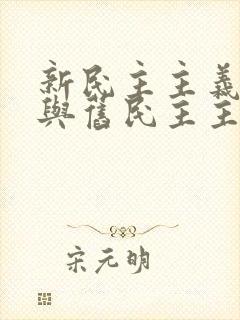 新民主主義
與舊民主主
宋元明